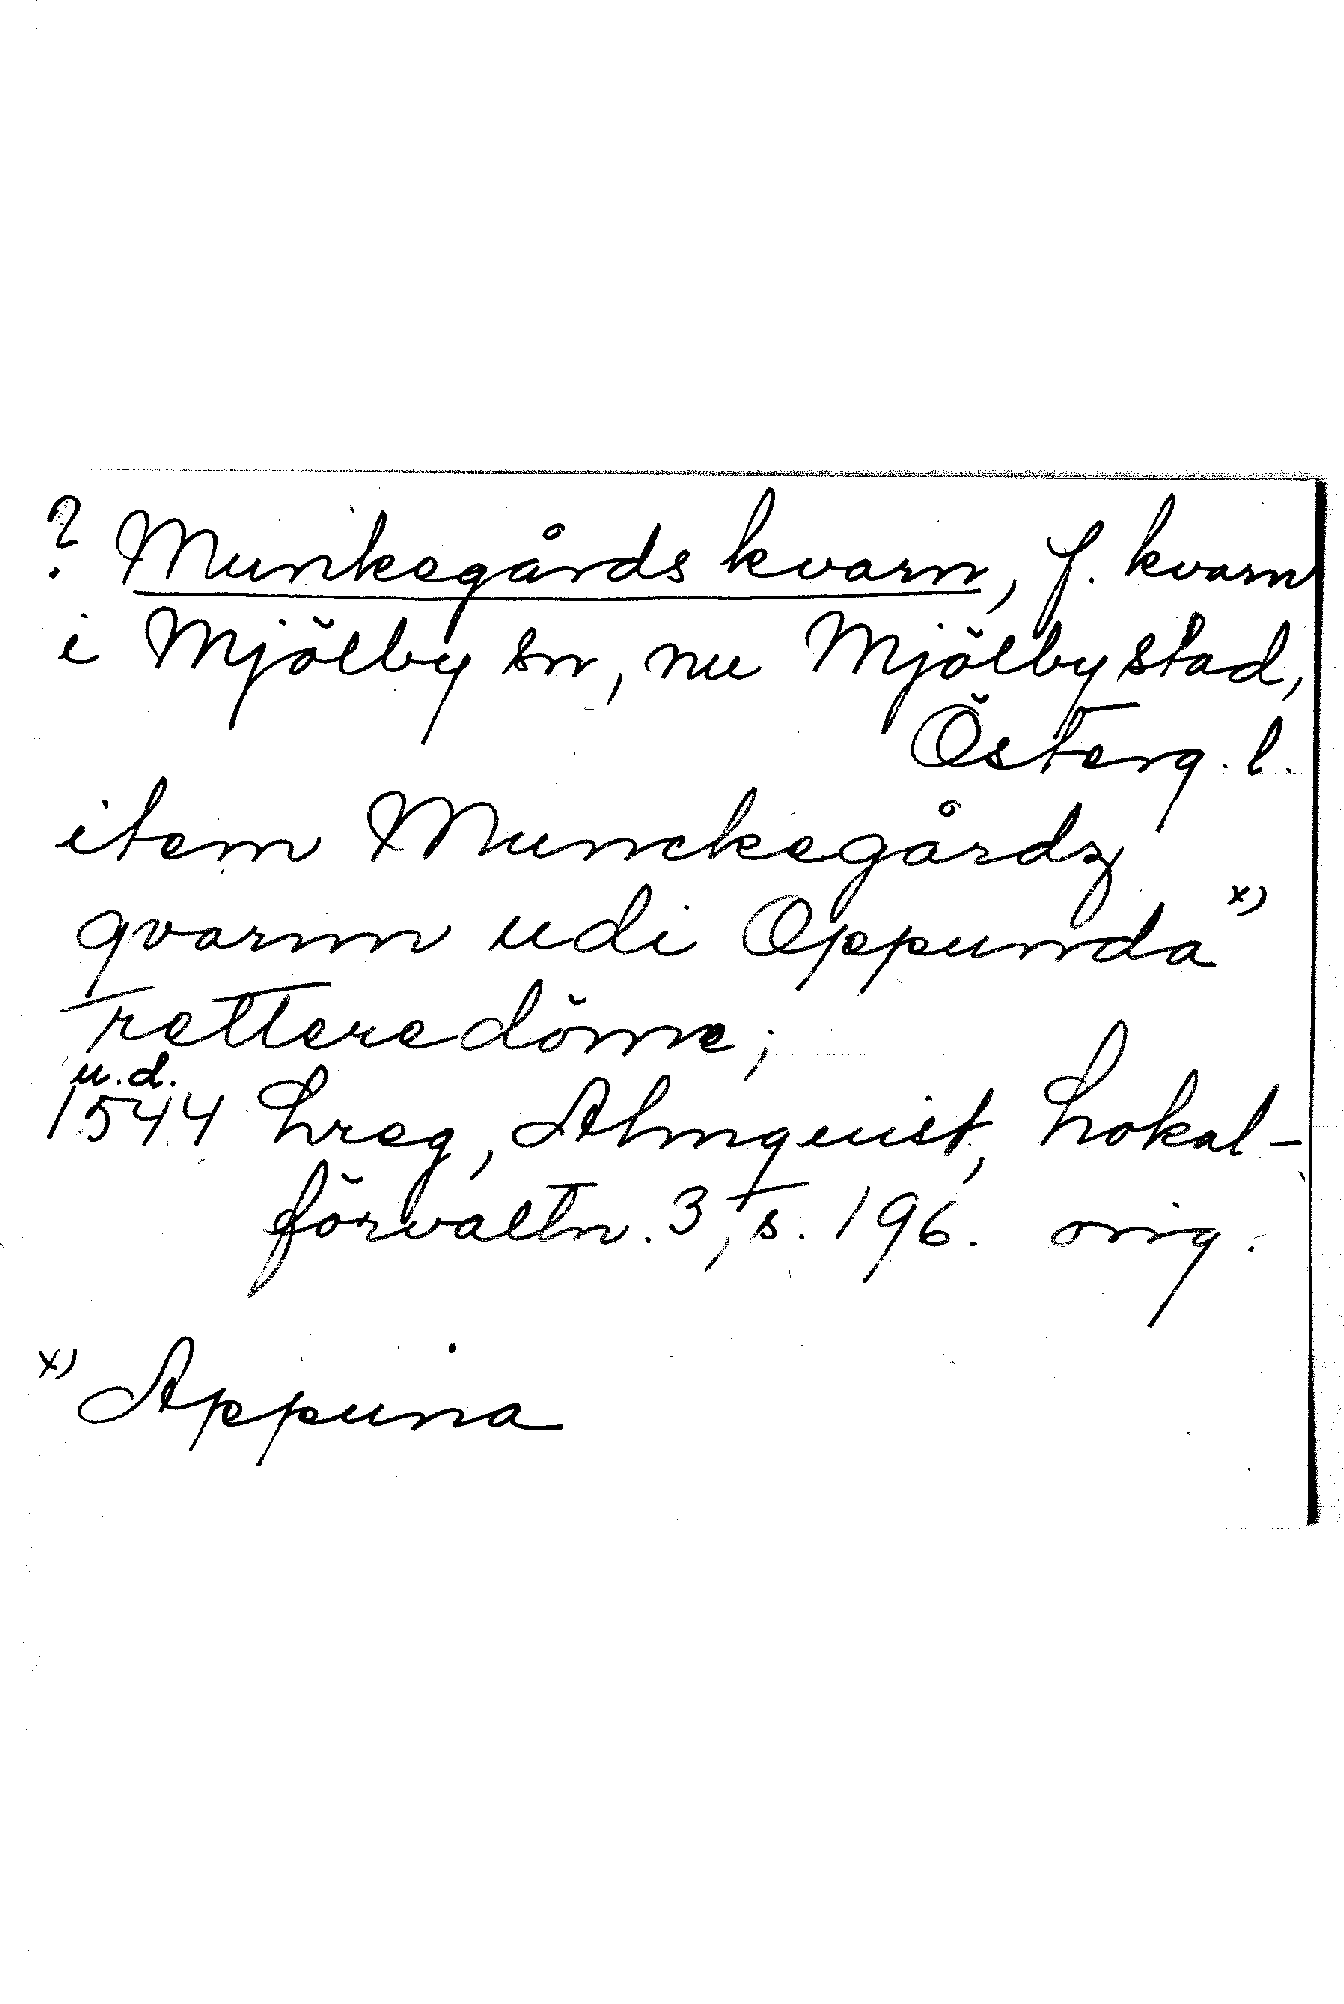 ? Munkegårds kvarn, f. kvarn
i Mjölby sn, nu Mjölby stad,
Österg. l.
item Munckegårdz
qvarnn udi Oppunda x)
retteredöme;
u.d.
1544 Lreg, Almquist, Lokal-
förvaltn. 3, s. 196. orig.
x) Appuna